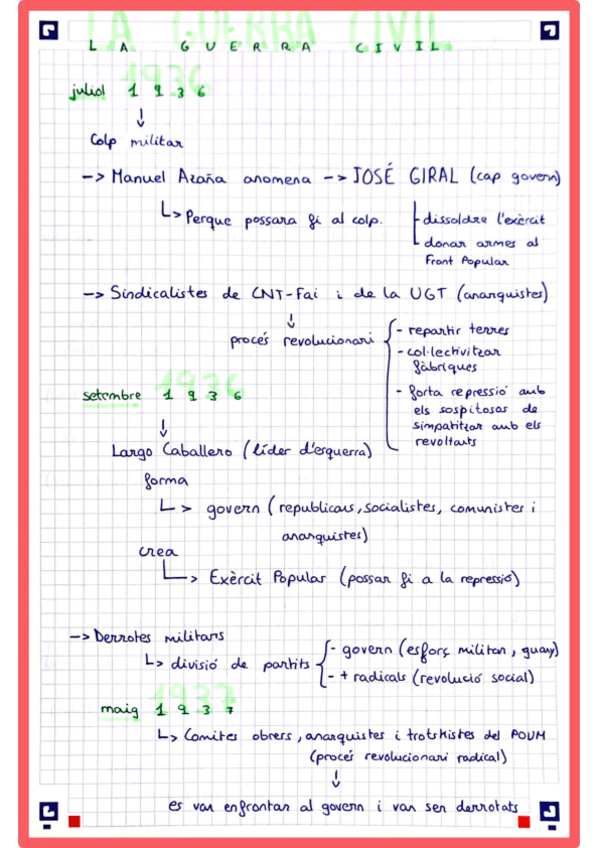 LA GUERRA CIVIL
juliol 1936
Colp militar
-> Manuel Azaña anomena -> JOSÉ GIRAL (cap govern)
↳ Perque possara fi al colp.
dissoldre l'exèrcit
donar armes al
Front Popular
-> Sindicalistes de CNT-Fai i de la UGT (anarquistes)
procés revolucionari
- repartir terres
- col·lectivitzar
fàbriques
- forta repressió amb
els sospitosos de
simpatitzar amb els
revoltants
setembre 1936
Largo Caballero (líder d'esquerra)
forma
↳ govern (republicans, socialistes, comunistes i
anarquistes)
crea
↳ Exèrcit Popular (possar fi a la repressió)
-> Derrotes militars
↳ divisió de partits
- govern (esforç militar, guany)
- + radicals (revolució social)
maig 1937
↳ Comites obrers, anarquistes i trotskistes del POUM
(procés revolucionari radical)
es van enfrontar al govern i van ser derrotats